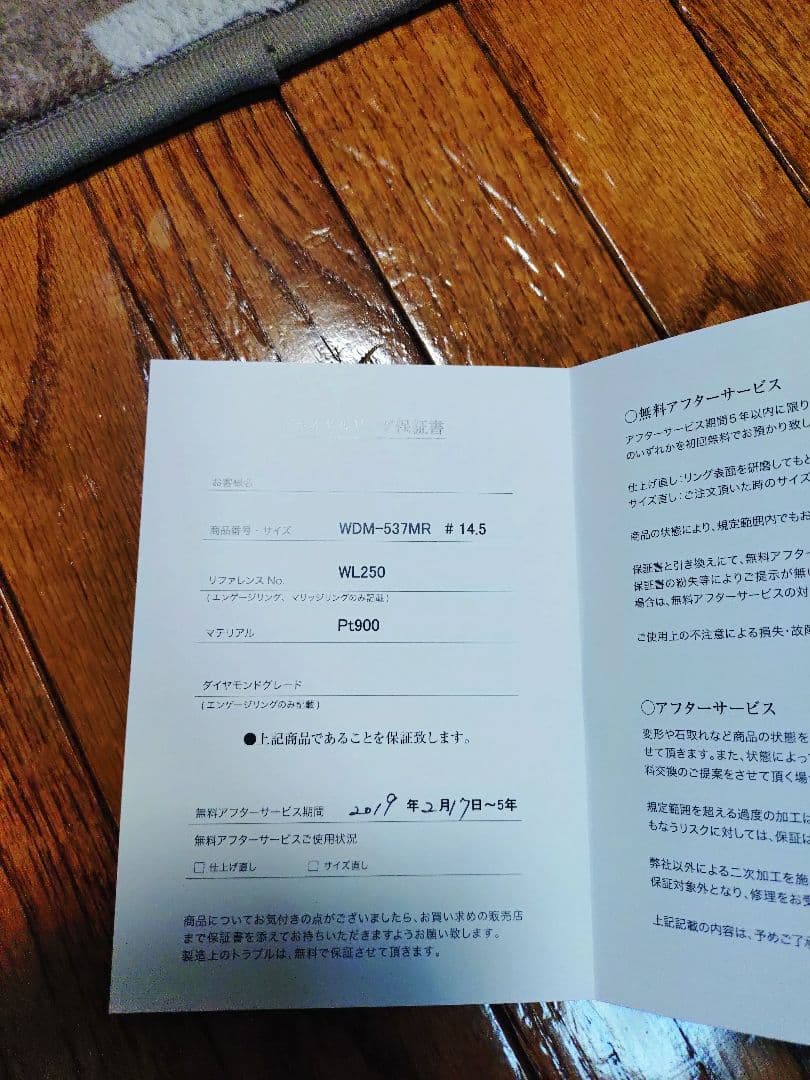 保証書
お客様名
商品番号・サイズ WDM-537MR # 14.5
リファレンスNo. WL250
(エンゲージリング、マリッジリングのみ記載)
マテリアル Pt900
ダイヤモンドグレード
(エンゲージリングのみ記載)
●上記商品であることを保証致します。
無料アフターサービス期間 2019 年2月17日〜5年
無料アフターサービスご使用状況
□ 仕上げ直し □ サイズ直し
商品についてお気付きの点がございましたら、お買い求めの販売店
まで保証書を添えてお持ちいただきますようお願い致します。
製造上のトラブルは、無料で保証させて頂きます。
○無料アフターサービス
アフターサービス期間5年以内に限り
のいずれかを初回無料でお預かり致し
仕上げ直し:リング表面を研磨してもと
サイズ直し:ご注文頂いた時のサイズ
商品の状態により、規定範囲内でもお
保証書と引き換えにて、無料アフター
保証書の紛失等によりご提示が無い
場合は、無料アフターサービスの対
ご使用上の不注意による損失・故障
○アフターサービス
変形や石取れなど商品の状態を
せて頂きます。また、状態によって
料交換のご提案をさせて頂く場
規定範囲を超える過度の加工は
もなうリスクに対しては、保証は
弊社以外による二次加工を施
保証対象外となり、修理をお受
上記記載の内容は、予めご了承